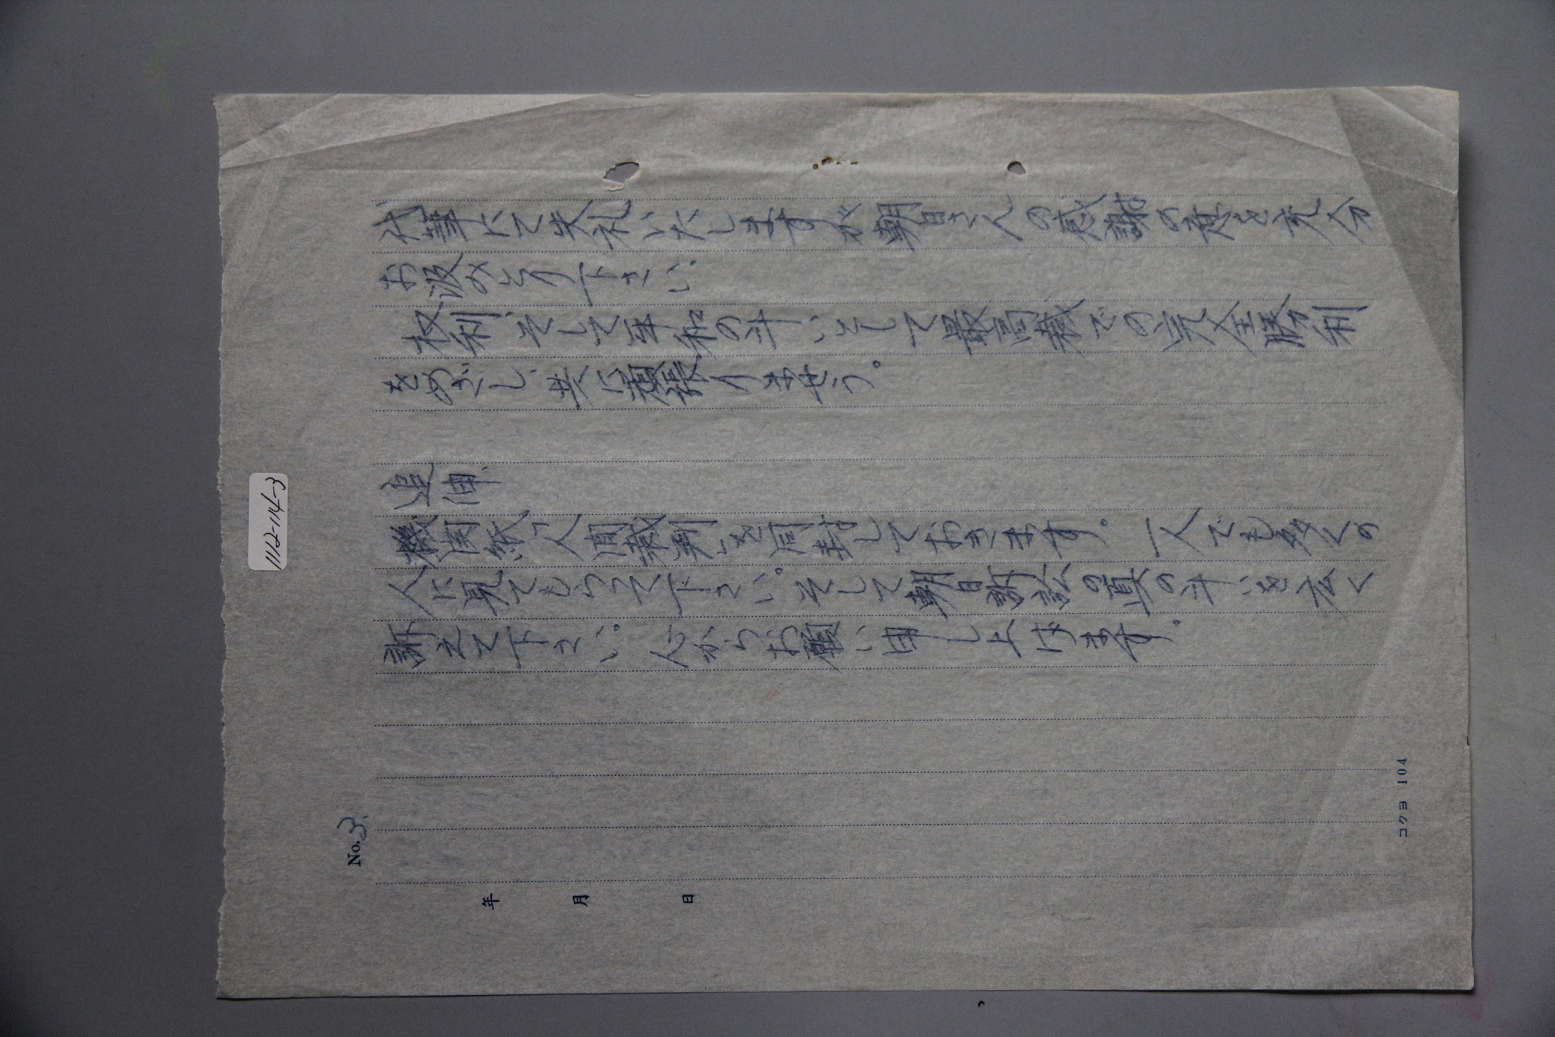 代筆にて失礼いたしますが朝日さんの感謝の意を充分
お汲みとり下さい、
権利、そして平和の斗いとして最高裁での完全勝利
をめざし共に頑張りませう。
追伸、
機関紙"人間裁判"を同封しておきます。一人でも多くの
人に見てもらって下さい。そして朝日訴訟の真の斗いを広く
訴えて下さい。心からお願い申し上げます。
No. 3.
年 月 日
コクヨ 104
1112-114-3